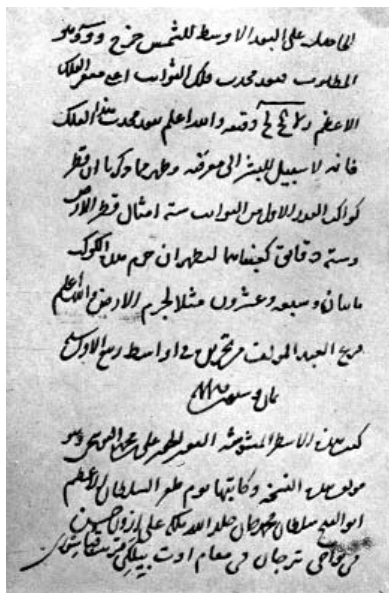 الحاصله على البعد الاوسط للشمس خرج وهو
المطلوب فبعد محدب فلك الثوابت اعني مقعر الفلك
الاعظم والله اعلم ببعد محدب هذا الفلك
فانه لا سبيل للبشر الى معرفته وظهر مما ذكرنا ان قطر
كواكب القدر الاول من الثوابت ستة امثال قطر الارض
وستة دقايق كعبناها ليظهر ان جرم هذا الكوكب
مايتان وسبعة وعشرون مثلا لجرم الارض والله اعلم
فرغ العبد المولف من تحريره في اواسط ربيع الاول
كتب هذه الاسطر المشوشة العبد علي بن محمد القوشجي وهو
مولف هذه النسخة وكاتبها يوم ظفر السلطان الاعظم
ابو الفتح سلطان محمد خان خلد الله ملكه على اوزون حسن
في نواحي ترجان في مقام اوت بيلكي